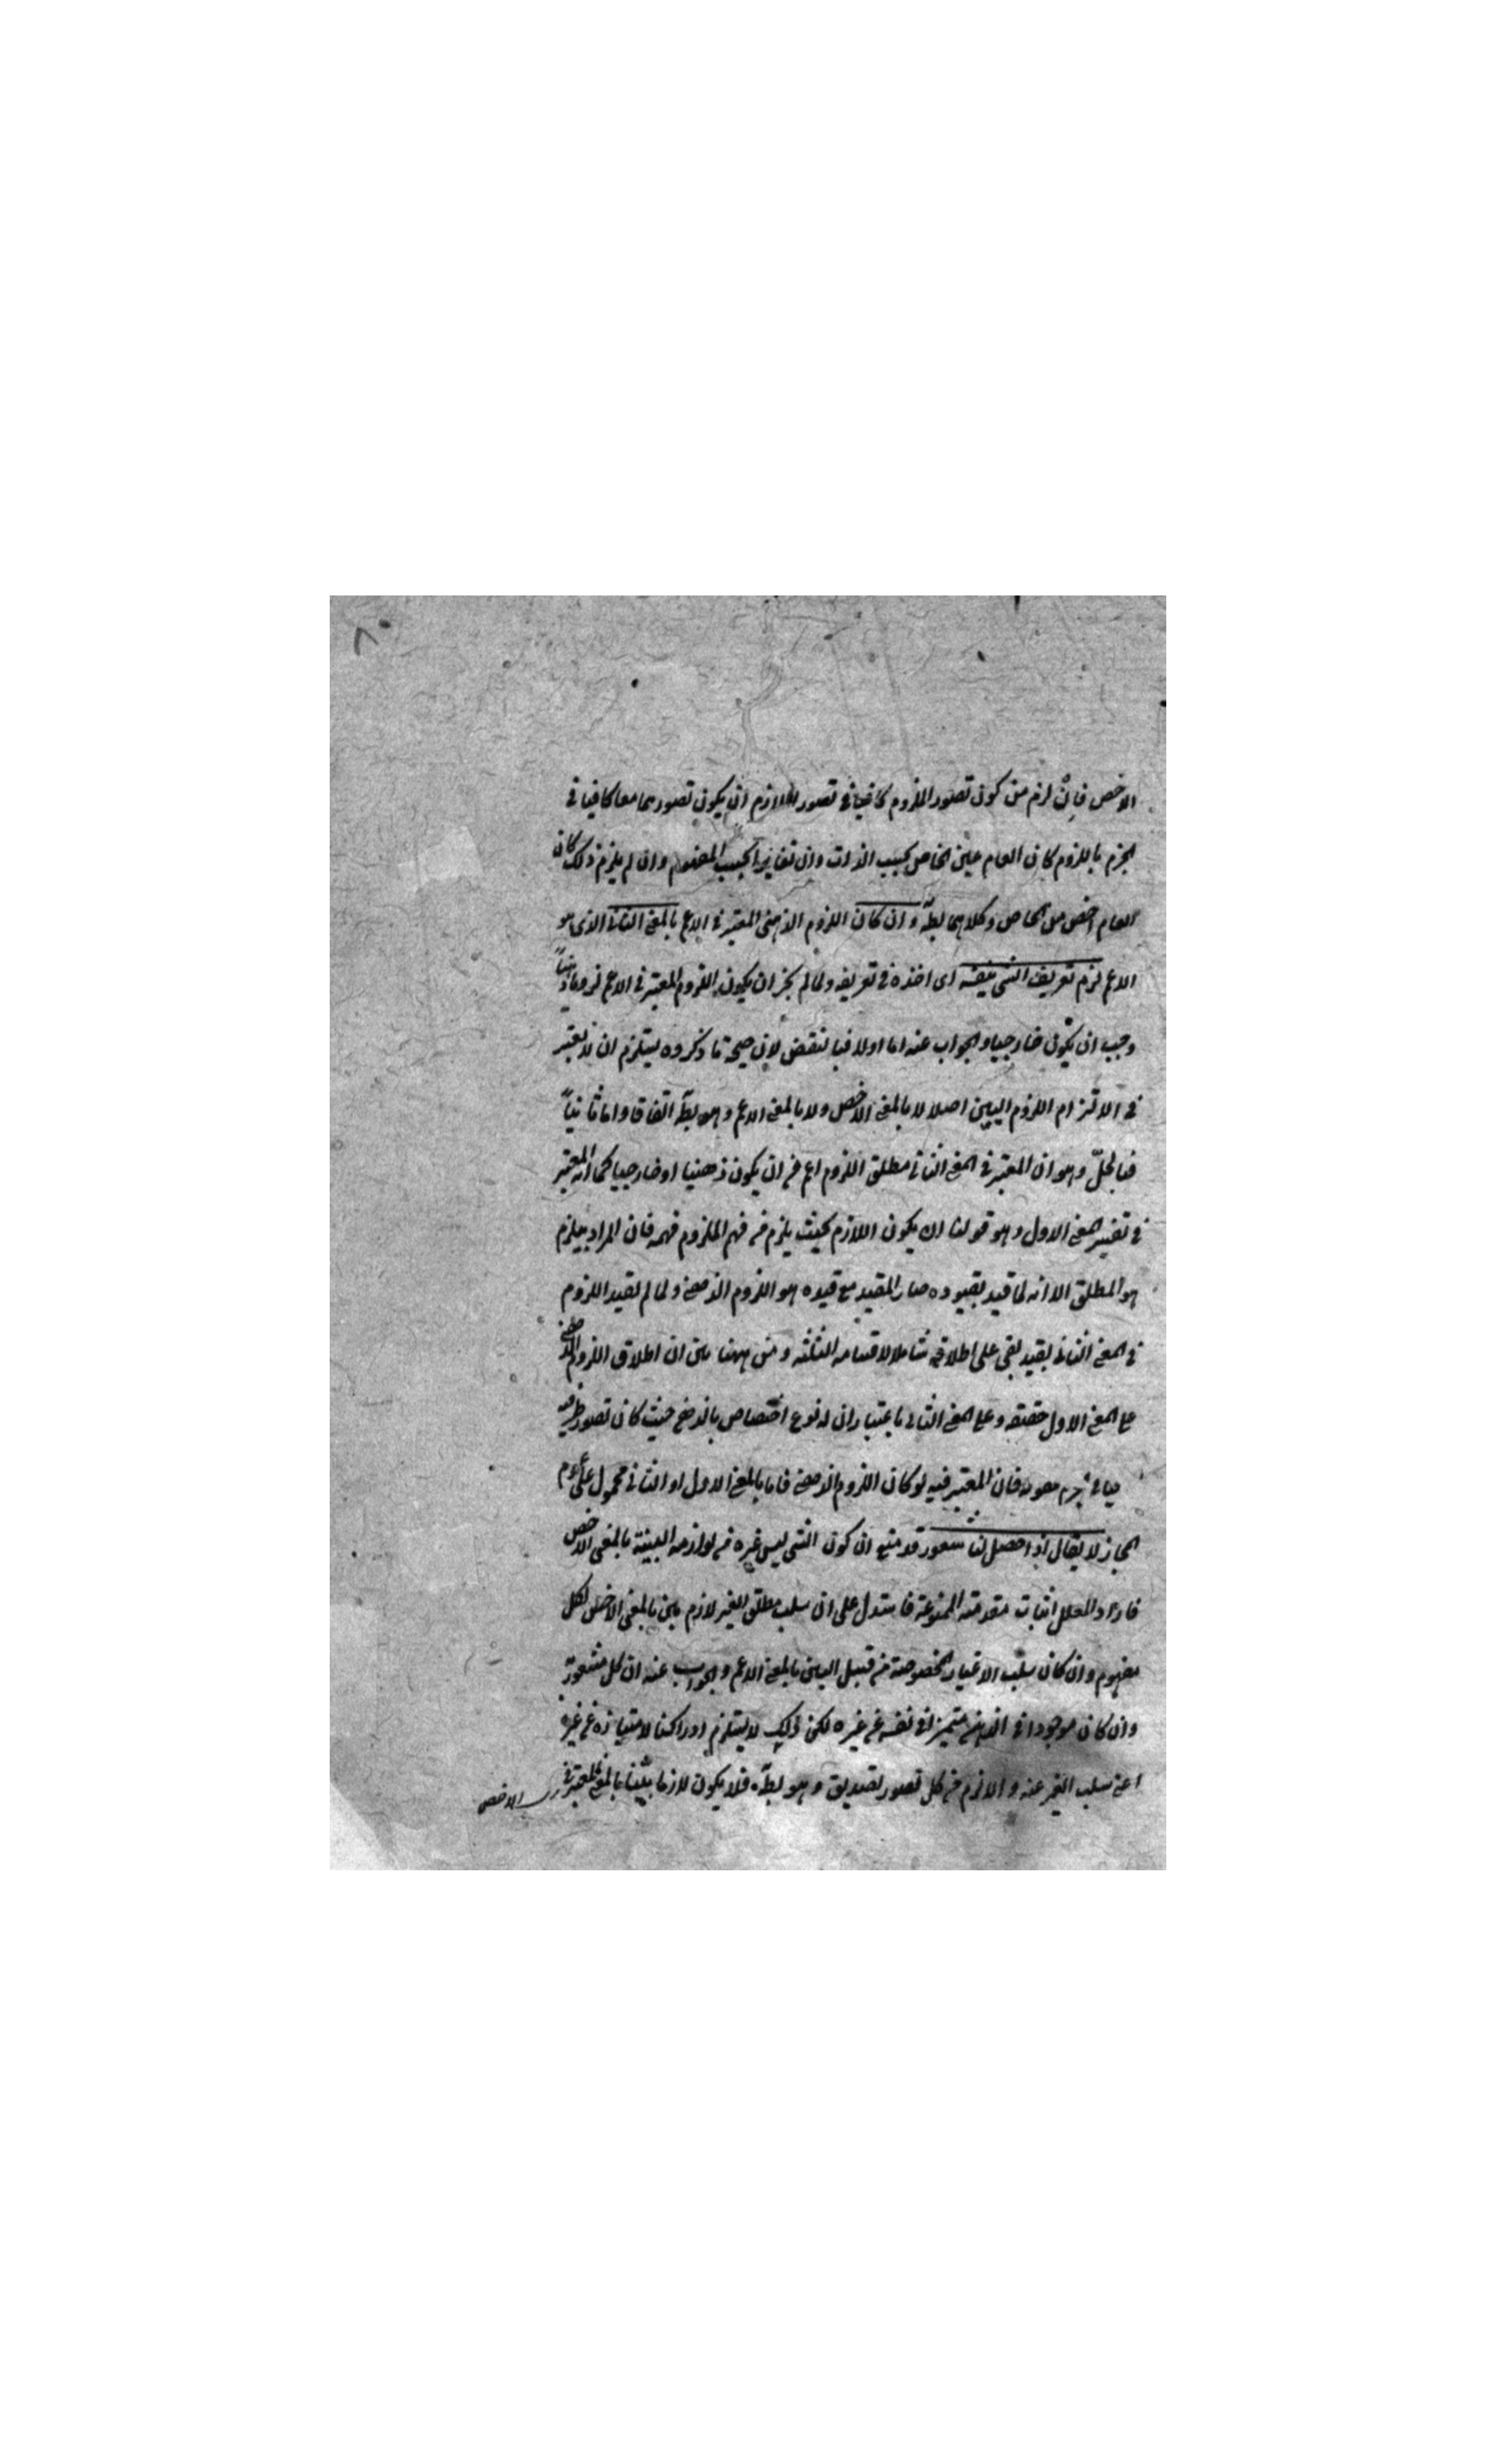 ٨
الاخص فان لزم من كون تصور الملزوم كافيا في تصور اللازم ان يكون تصورهما معا كافيا في
الجزم باللزوم كان العام عين الخاص بحسب الذات وان تغايرا بحسب المفهوم وان لم يلزم ذلك كان
العام اخص من الخاص وكلاهما بط وان كان اللزوم الذهني المعتبر في الاعم بالمعنى الثاني الذي هو
الاعم لزم تعريف الشي بنفسه اى اخذه في تعريفه ولما لم يجز ان يكون اللزوم المعتبر في الاعم لزوما ذهنيا
وجب ان يكون خارجيا والجواب عنه اما اولا فبالنقض لان صحة ما ذكروه يستلزم ان لا يعتبر
في الالتزام اللزوم البين اصلا لا بالمعنى الاخص ولا بالمعنى الاعم وهو بط اتفاقا واما ثانيا
فبالحل وهو ان المعتبر في المعنى الثاني مطلق اللزوم اعم من ان يكون ذهنيا او خارجيا كما انه المعتبر
في تفسير المعنى الاول وهو قولنا ان يكون اللازم بحيث يلزم من فهم الملزوم فهمه فان المراد بيلزم
هو المطلق الا انه لما قيد بقيوده صار المقيد مع قيده هو اللزوم الذهني ولما لم يقيد اللزوم
في المعنى الثاني بقيد بقي على اطلاقه شاملا لاقسامه الثلثه ومن ههنا بين ان اطلاق اللزوم الذهني
على المعنى الاول حقيقه وعلى المعنى الثاني باعتبار ان له نوع اختصاص بالذهن حيث كان تصور طرفيه
فان المعتبر فيه لو كان اللزوم الذهني فاما بالمعنى الاول او الثاني محمول على عموم
المجاز لا يقال اذا حصل لنا شعور قد منع ان كون الشي ليس غيره من لوازمه البينة بالمعنى الاخص
فاراد المعلل اثبات مقدمته الممنوعة فاستدل على ان سلب مطلق الغير لازم بين بالمعنى الاخص لكل
مفهوم وان كان سلب الاغيار المخصوصة من قبيل البين بالمعنى الاعم والجواب عنه ان كل مشعور به
وان كان موجودا في الذهن متميزا في نفسه عن غيره لكن ذلك لا يستلزم ادراكنا لامتيازه عن غيره
اعني سلب الغير عنه والا لزم من كل تصور تصديق وهو بط فلا يكون لازما بينا بالمعنى المعتبر في
الاخص